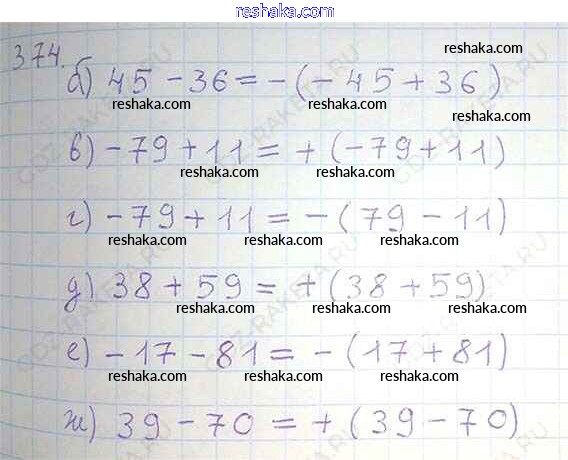 reshaka.com
374.
б) 45 - 36 = - (- 45 + 36)
reshaka.com reshaka.com
в) - 79 + 11 = + (- 79 + 11)
reshaka.com reshaka.com
г) - 79 + 11 = - (79 - 11)
reshaka.com reshaka.com
д) 38 + 59 = + (38 + 59)
reshaka.com reshaka.com
е) - 17 - 81 = - (17 + 81)
reshaka.com reshaka.com
ж) 39 - 70 = + (39 - 70)
reshaka.com reshaka.com